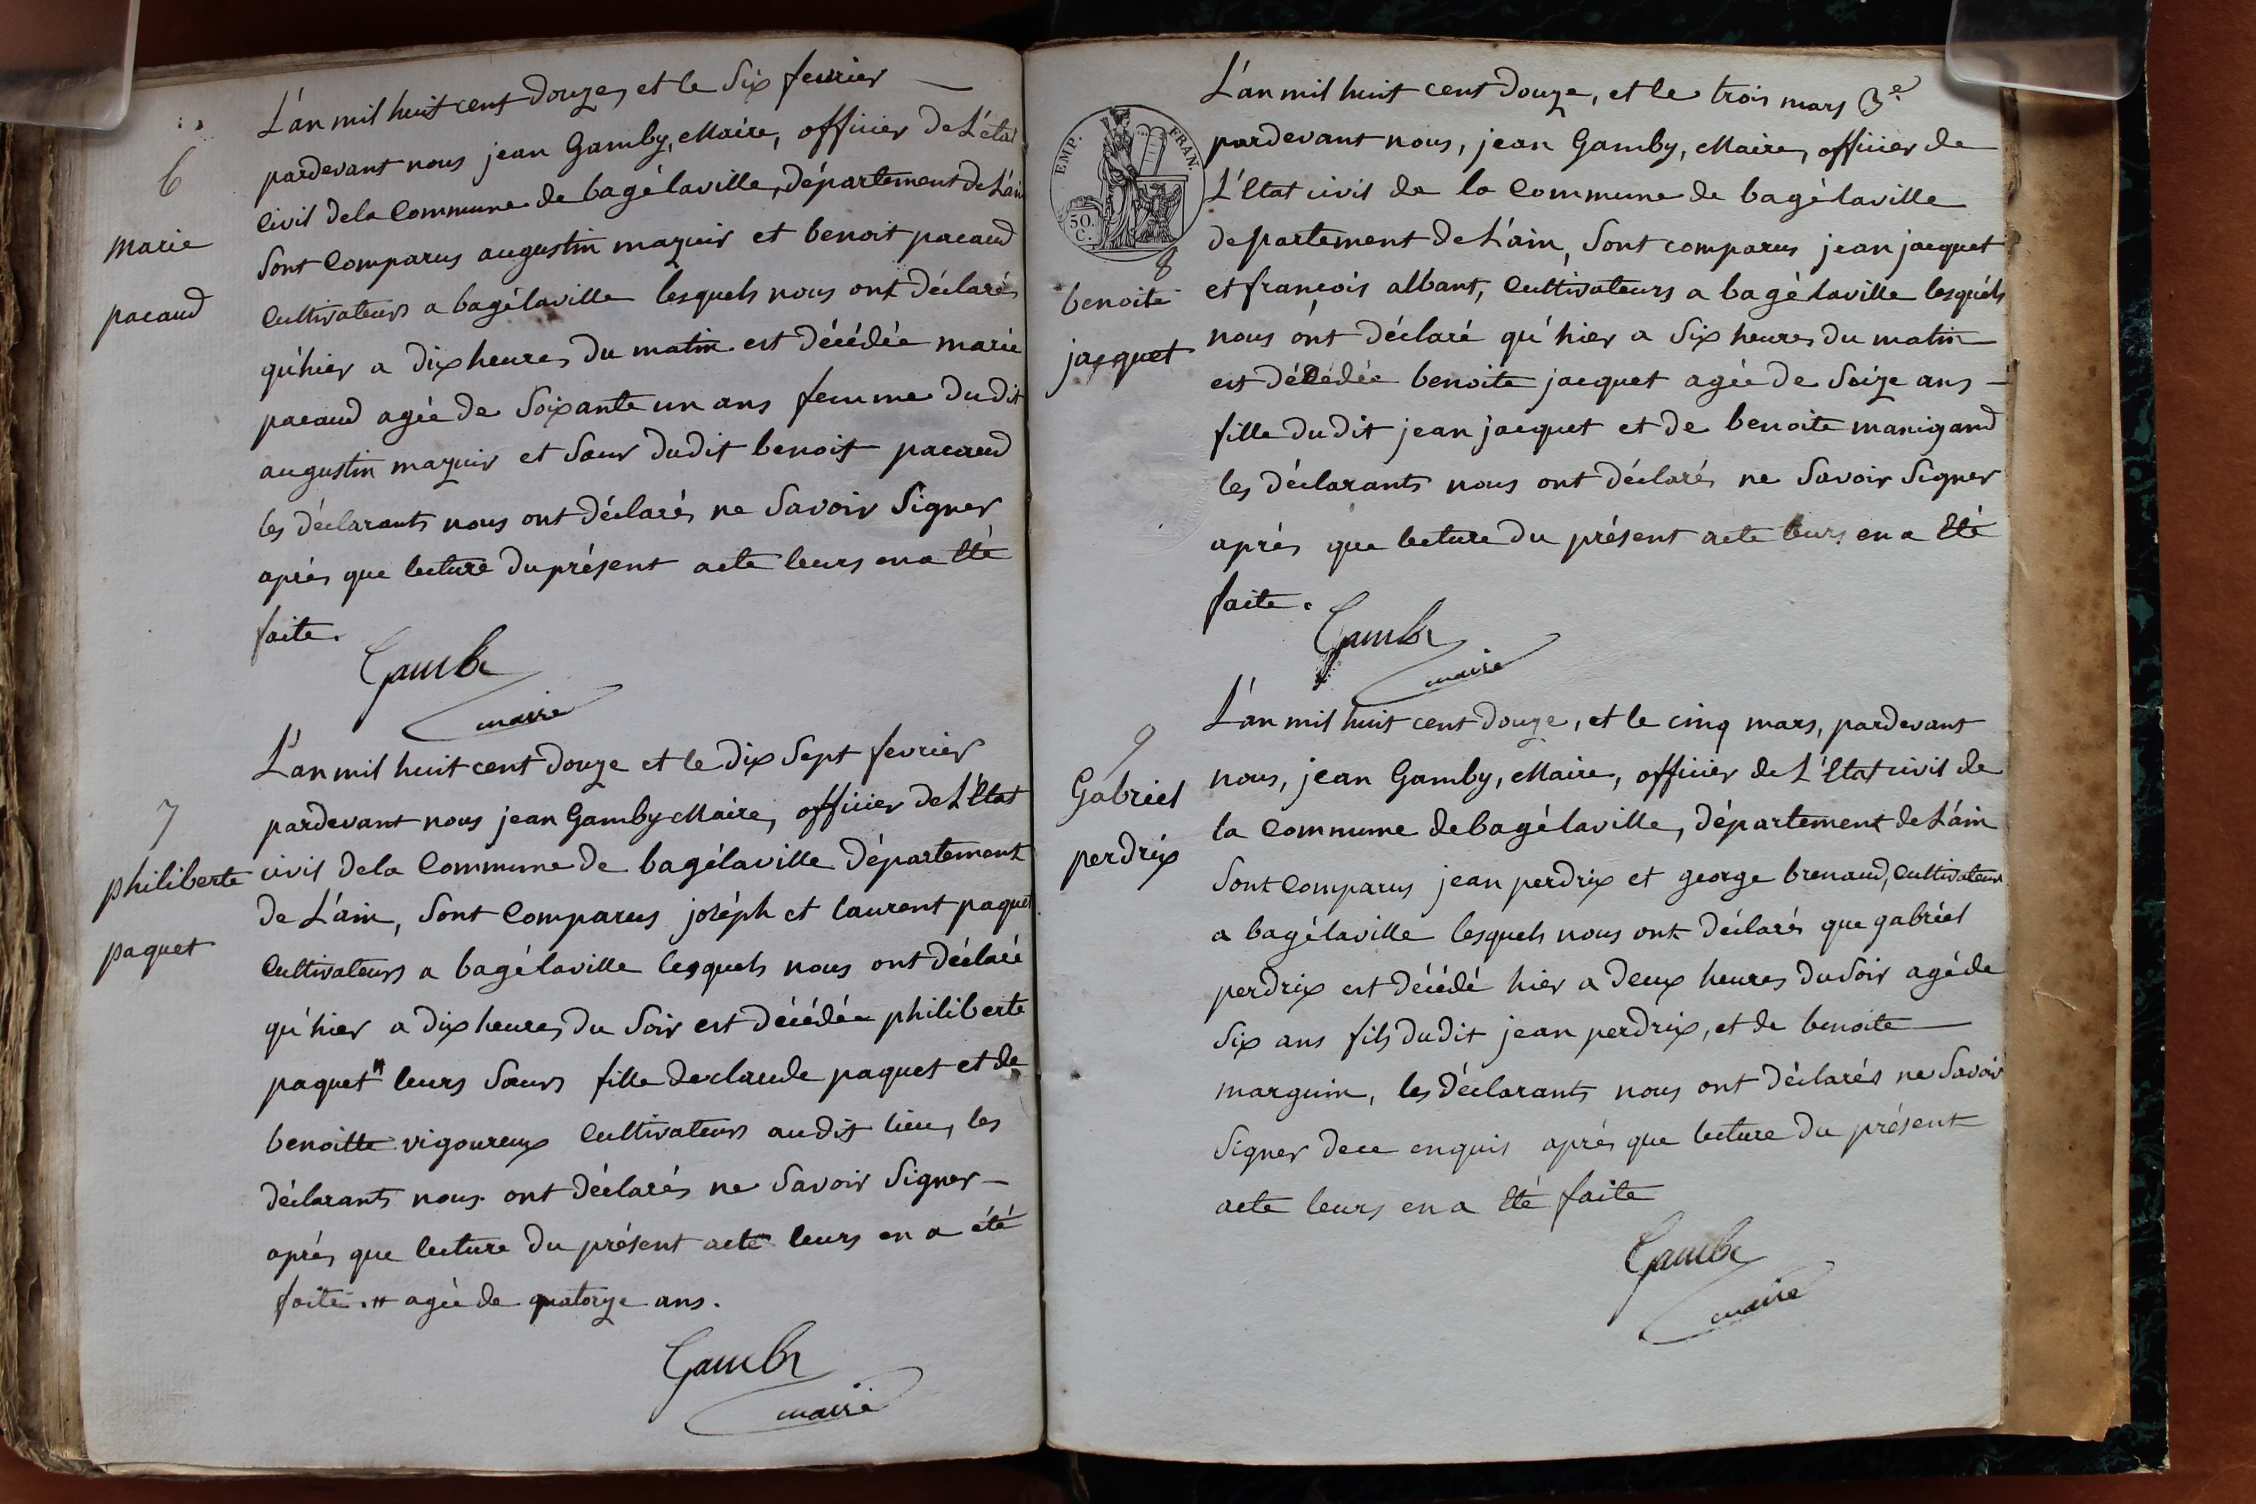 6
marie
pacaud
L'an mil huit cent douze, et le Six fevrier
pardevant nous jean Gamby, Maire, officier de L'état
Civil de la Commune de bagélaville, département de L'ain
Sont Comparus augustin mazuir et benoit pacaud
Cultivateurs a bagélaville lesquels nous ont déclarés
qu'hier a dix heures du matin est décédée marie
pacaud agée de Soixante un ans femme dudit
augustin mazuir et Sœur dudit benoit pacaud
les déclarants nous ont déclarés ne Savoir Signer
après que lecture du présent acte leurs en a Eté
faite.
Gambi
maire
7
philiberte
paquet
L'an mil huit cent douze et le dix Sept fevrier
pardevant nous jean Gamby Maire, officier de L'Etat
civil de la Commune de bagélaville département
de L'ain, Sont Comparus joséph et laurent paquet
Cultivateurs a bagélaville lesquels nous ont déclaré
qu'hier a dix heures du Soir est décédée philiberte
paquet # leurs Sœurs fille de claude paquet et de
benoitte vigoureux Cultivateurs audit lieu, les
déclarants nous ont déclarés ne Savoir Signer
après que lecture du présent acte leurs en a été
faite. # agée de quatorze ans.
Gambi
maire
EMP. FRAN.
50
C.
8
benoite
jacquet
L'an mil huit cent douze, et le trois mars 3e
pardevant nous, jean Gamby, Maire, officier de
L'Etat civil de la Commune de bagélaville
departement de L'ain, Sont comparus jean jacquet
et francois albant, Cultivateurs a bagélaville lesquéls
nous ont déclaré qu'hier a Six heures du matin
est décédée benoite jacquet agée de Seize ans
fille dudit jean jacquet et de benoite manigand
les déclarants nous ont déclarés ne Savoir Signer
après que lecture du présent acte leurs en a Eté
faite.
Gambi
maire
9
Gabriel
perdrix
L'an mil huit cent douze, et le cinq mars, pardevant
nous, jean Gamby, Maire, officier de L'Etat civil de
la Commune de bagélaville, département de L'ain
Sont Comparus jean perdrix et george brenaud, Cultivateurs
a bagélaville lesquels nous ont déclarés que gabriel
perdrix est décédé hier a deux heures du Soir agé de
Six ans fils dudit jean perdrix, et de benoite
marguin, les déclarants nous ont déclarés ne Savoir
Signer de ce enquis après que lecture du présent
acte leurs en a Eté faite
Gambi
maire